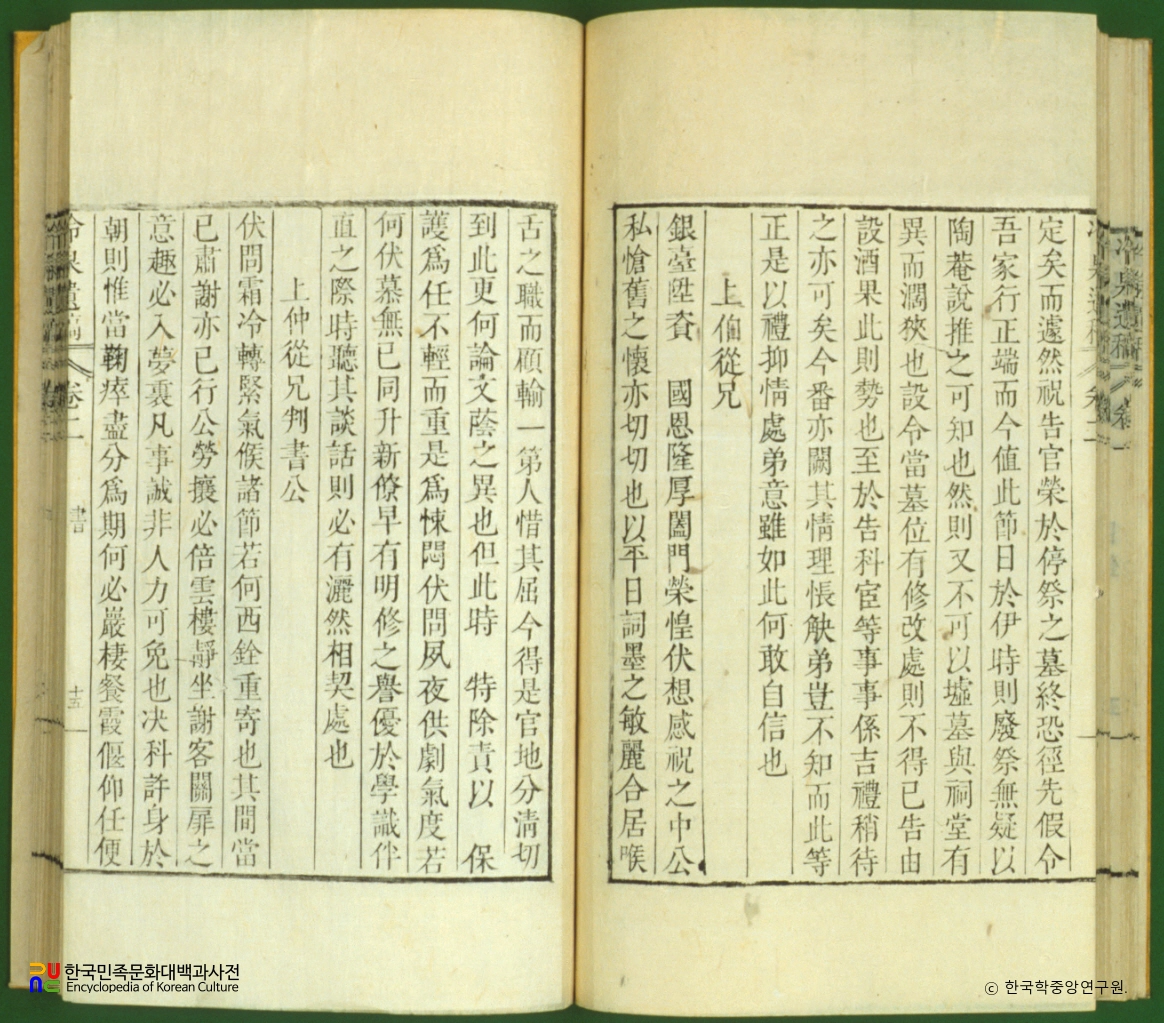 定矣而遽然祝告官榮於停祭之墓終恐徑先假令
吾家行正端而今值此節日於伊時則廢祭無疑以
陶菴說推之可知也然則又不可以墟墓與祠堂有
異而濶狹也設令當墓位有修改處則不得已告由
設酒果此則勢也至於告科宦等事事係吉禮稍待
之亦可矣今番亦闕其情理悵觖弟豈不知而此等
正是以禮抑情處弟意雖如此何敢自信也
上伯從兄
銀臺陞資 國恩隆厚闔門榮惶伏想感祝之中公
私愴舊之懷亦切切也以平日詞墨之敏麗合居喉
舌之職而顧輸一第人惜其屈今得是官地分淸切
到此更何論文蔭之異也但此時 特除責以 保
護爲任不輕而重是爲悚悶伏問夙夜供劇氣度若
何伏慕無已同升新僚早有明修之譽優於學識伴
直之際時聽其談話則必有灑然相契處也
上仲從兄判書公
伏問霜冷轉緊氣候諸節若何西銓重寄也其間當
已肅謝亦已行公勞攘必倍雲樓靜坐謝客關扉之
意趣必入夢裏凡事誠非人力可免也决科許身於
朝則惟當鞠瘁盡分爲期何必巖棲餐霞偃仰任便
冷泉遺稿 卷二 書 十五
한국민족문화대백과사전
Encyclopedia of Korean Culture
ⓒ 한국학중앙연구원.